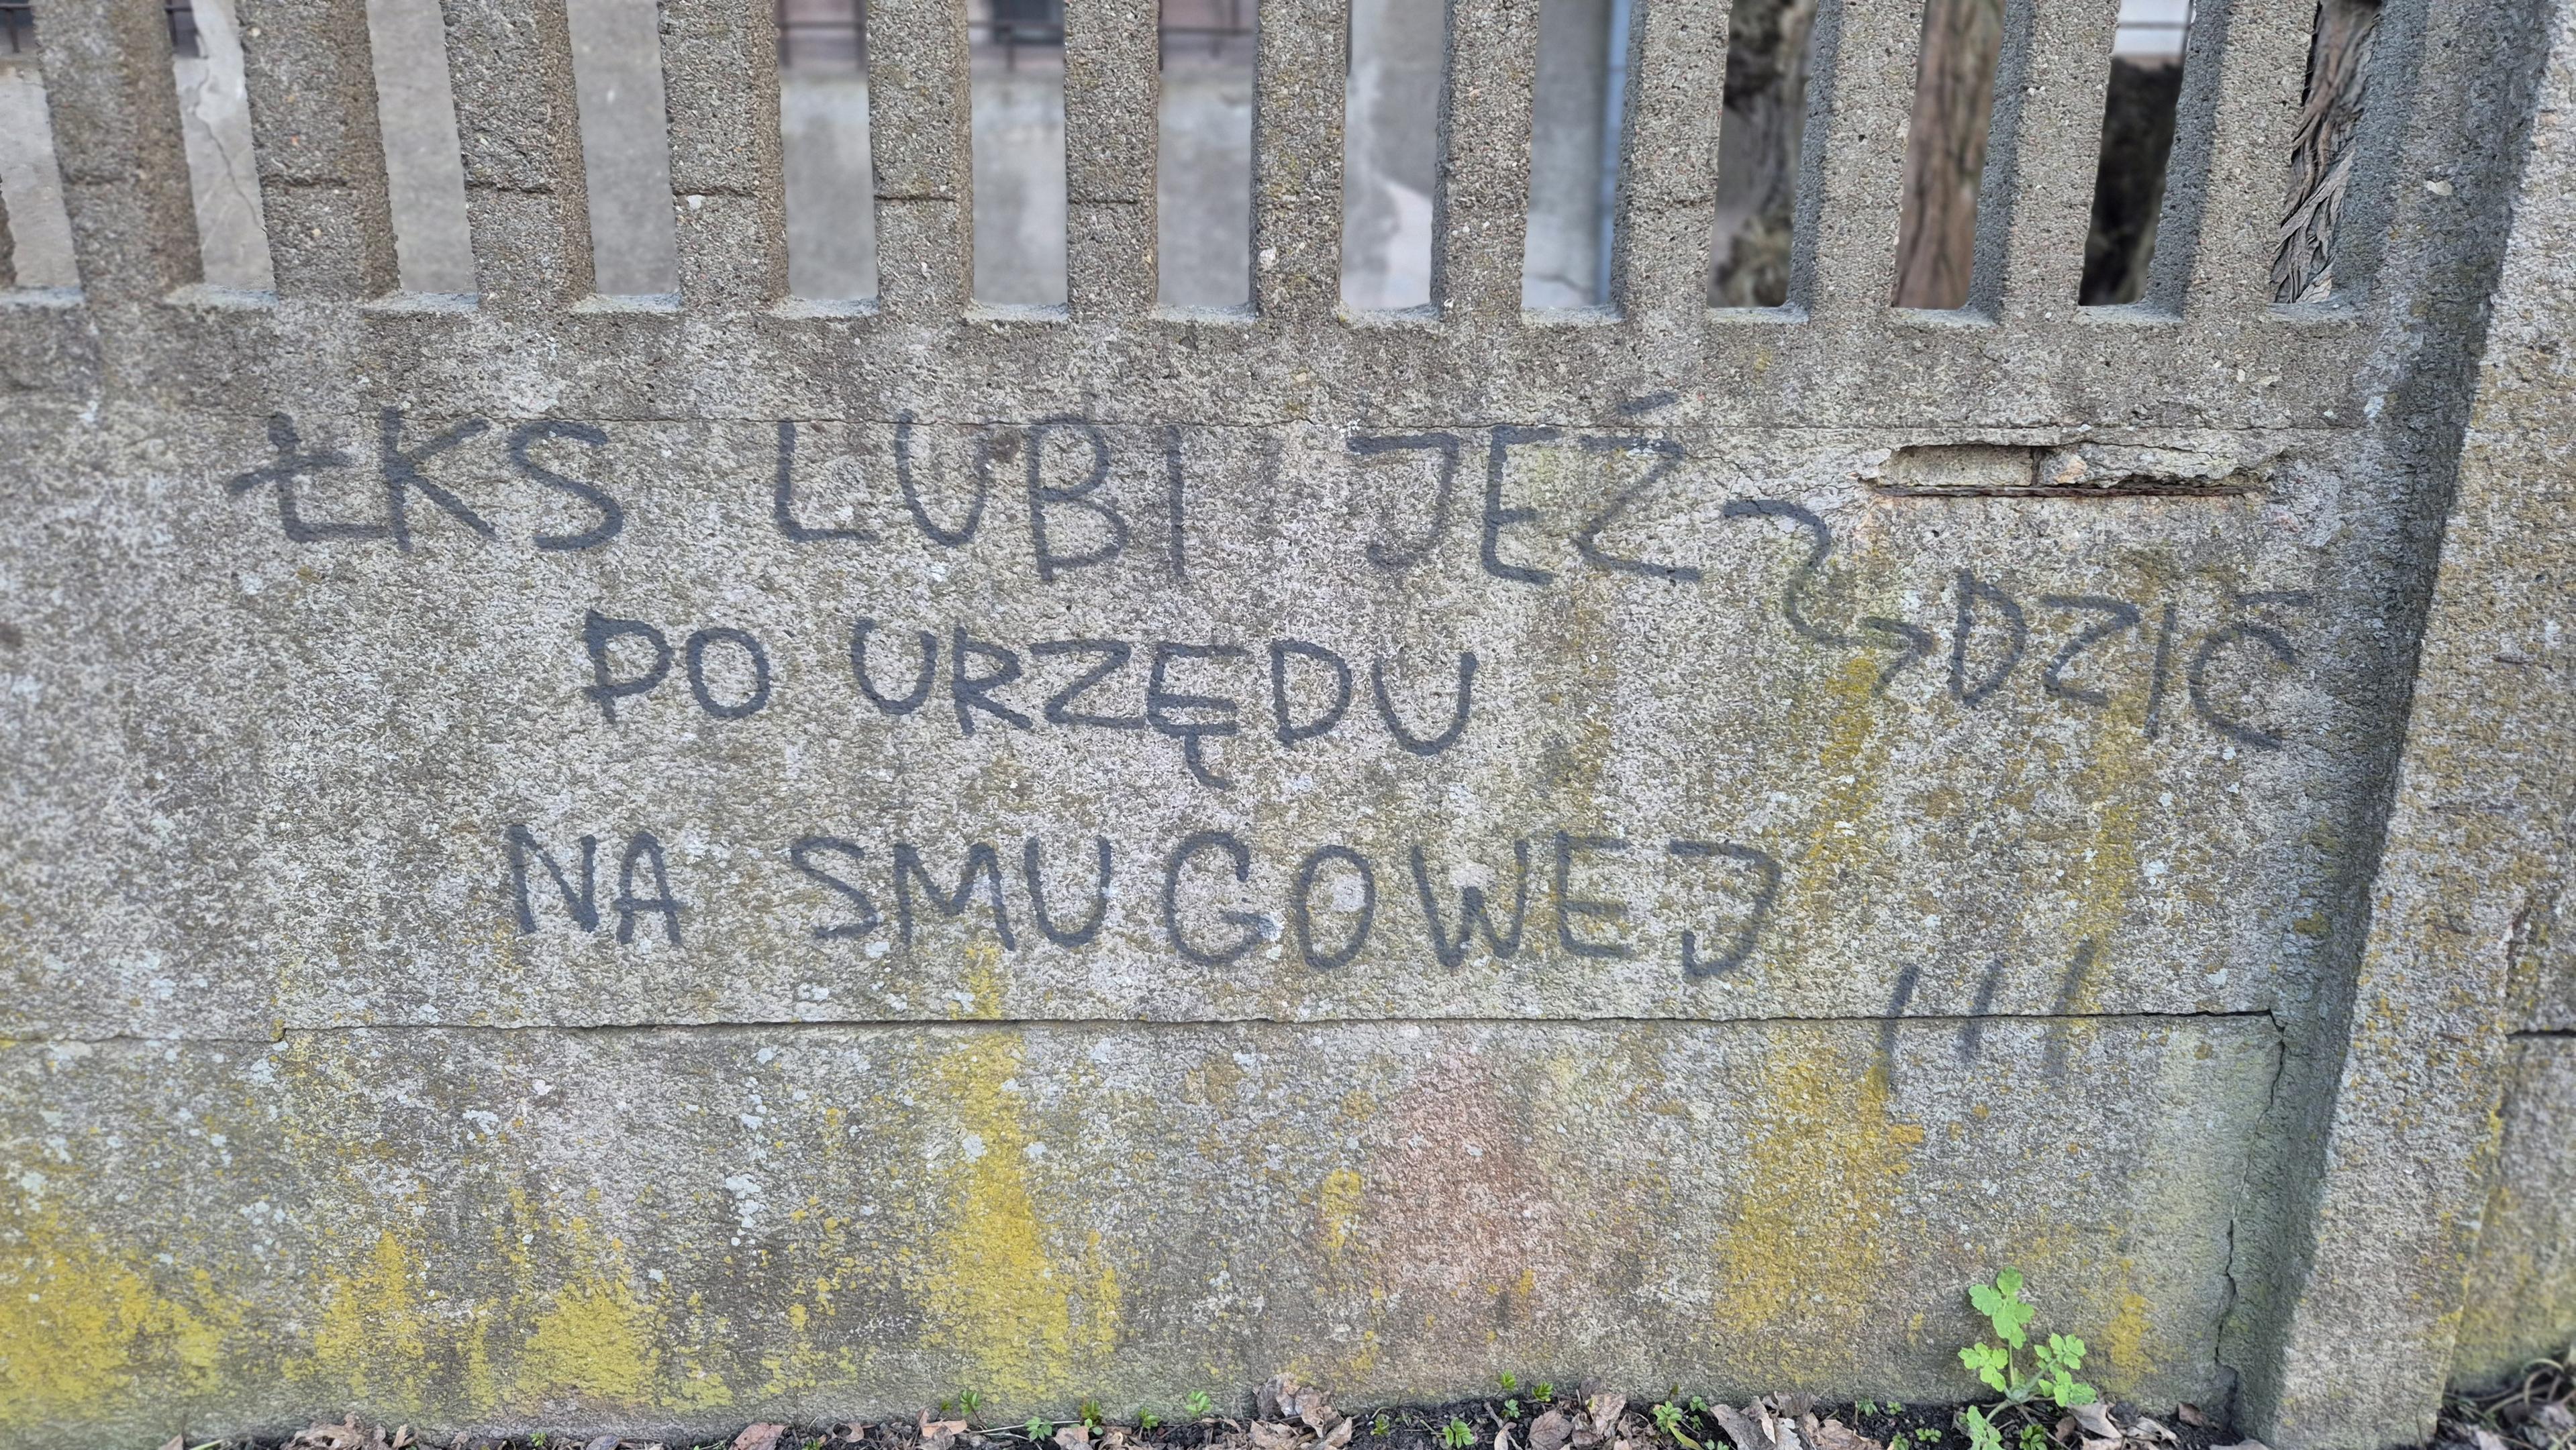 ŁKS LUBI JEŹ
DZIĆ
PO URZĘDU
NA SMUGOWEJ
!!!